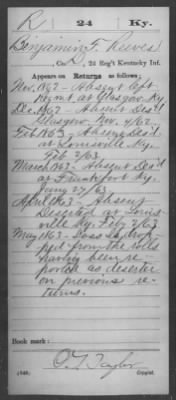 R | 24 | Ky.
Benjamin F. Reeves
, Co. D, 24 Reg't Kentucky Inf.
Appears on Returns as follows:
Nov. 1862 - Absent left
Regmt. at Glasgow, Ky.
Dec. 1862 - Absent Des'd
Glasgow, Nov. 4/62.
Feb 1863 - Absent Des'd
at Louisville Ky.
Feb 2/63.
March 1863 - Absent Des'd
at Frankfort Ky.
/63
April 1863 - Absent
Deserted at Louis-
ville Ky. Feby 2/63
May 1863 - Loss Drop-
ped from the rolls
having been re-
ported as deserter
on previous re-
turns.
Book mark:
Taylor
(546) Copyist.